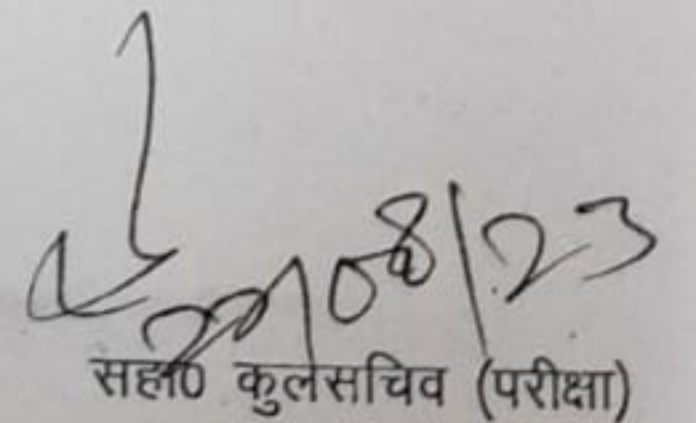 08/23
सहा0 कुलसचिव (परीक्षा)